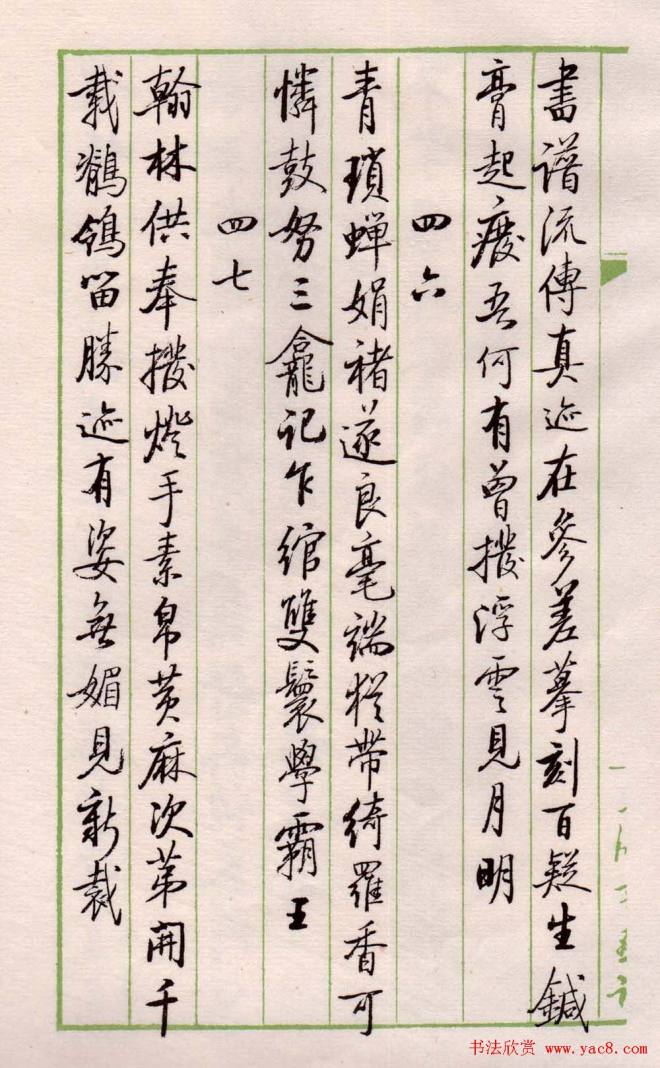 書譜流傳真迹在參差摹刻百疑生鍼
膏起廢吾何有曾撥浮雲見月明
四六
青瑣蟬娟褚遂良毫端猶帶綺羅香可
憐鼓努三龕記乍綰雙鬟學霸王
四七
翰林供奉撥燈手素帛黃麻次第開千
載鶺鴒留勝迹有姿無媚見新裁
书法欣赏 www.yac8.com